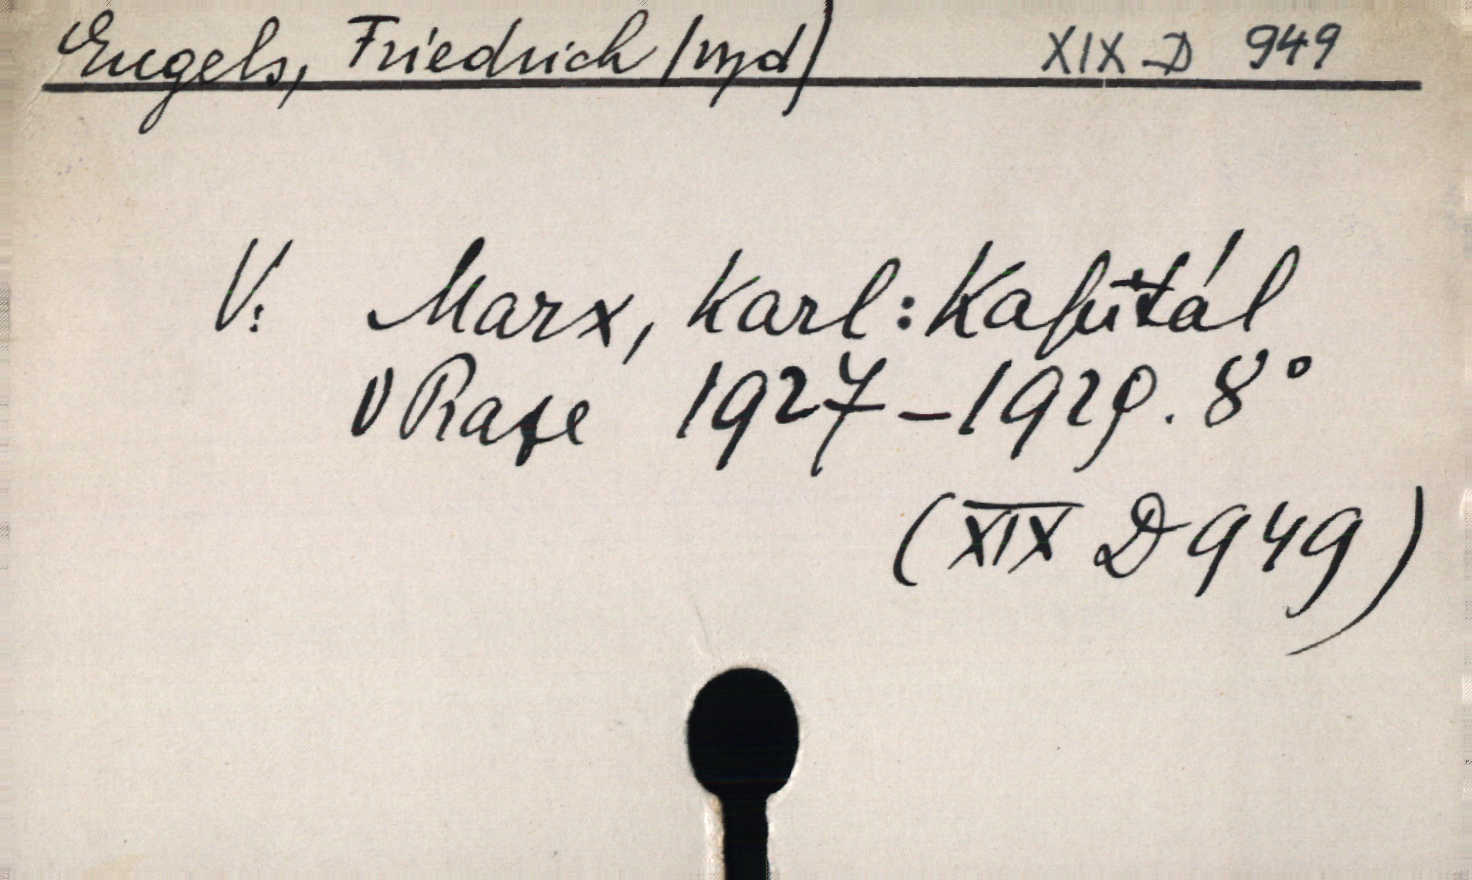 Engels, Friedrich (vyd) XIX D 949
V: Marx, Karl: Kapitál
V Praze 1927-1929. 8°
(XIX D 949)